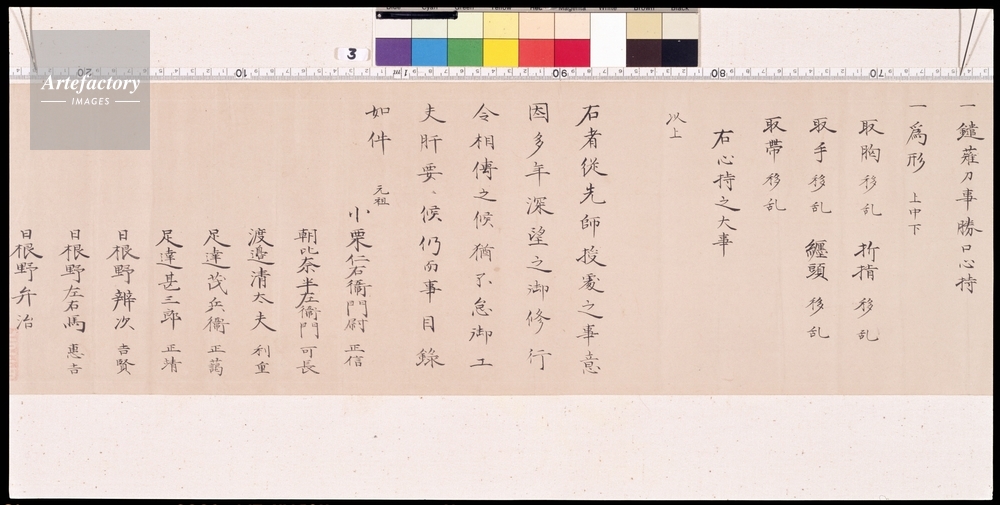 一鑓薙刀事勝口心持
一為形 上中下
取胸 移乱 折指 移乱
取手 移乱 纏頭 移乱
取帯 移乱
右心持之大事
以上
右者従先師授受之事意
因多年深望之御修行
令相傳之候猶不怠御工
夫肝要ニ候仍而事目録
如件
元祖
小栗仁右衛門尉 正信
朝比奈半左衛門 可長
渡邉清大夫 利重
足達茂兵衛 正
足達甚三郎 正靖
日根野辨次 吉賢
日根野左右馬 惠吉
日根野弁治
3
Artefactory
IMAGES
20
10
1m
90
80
70